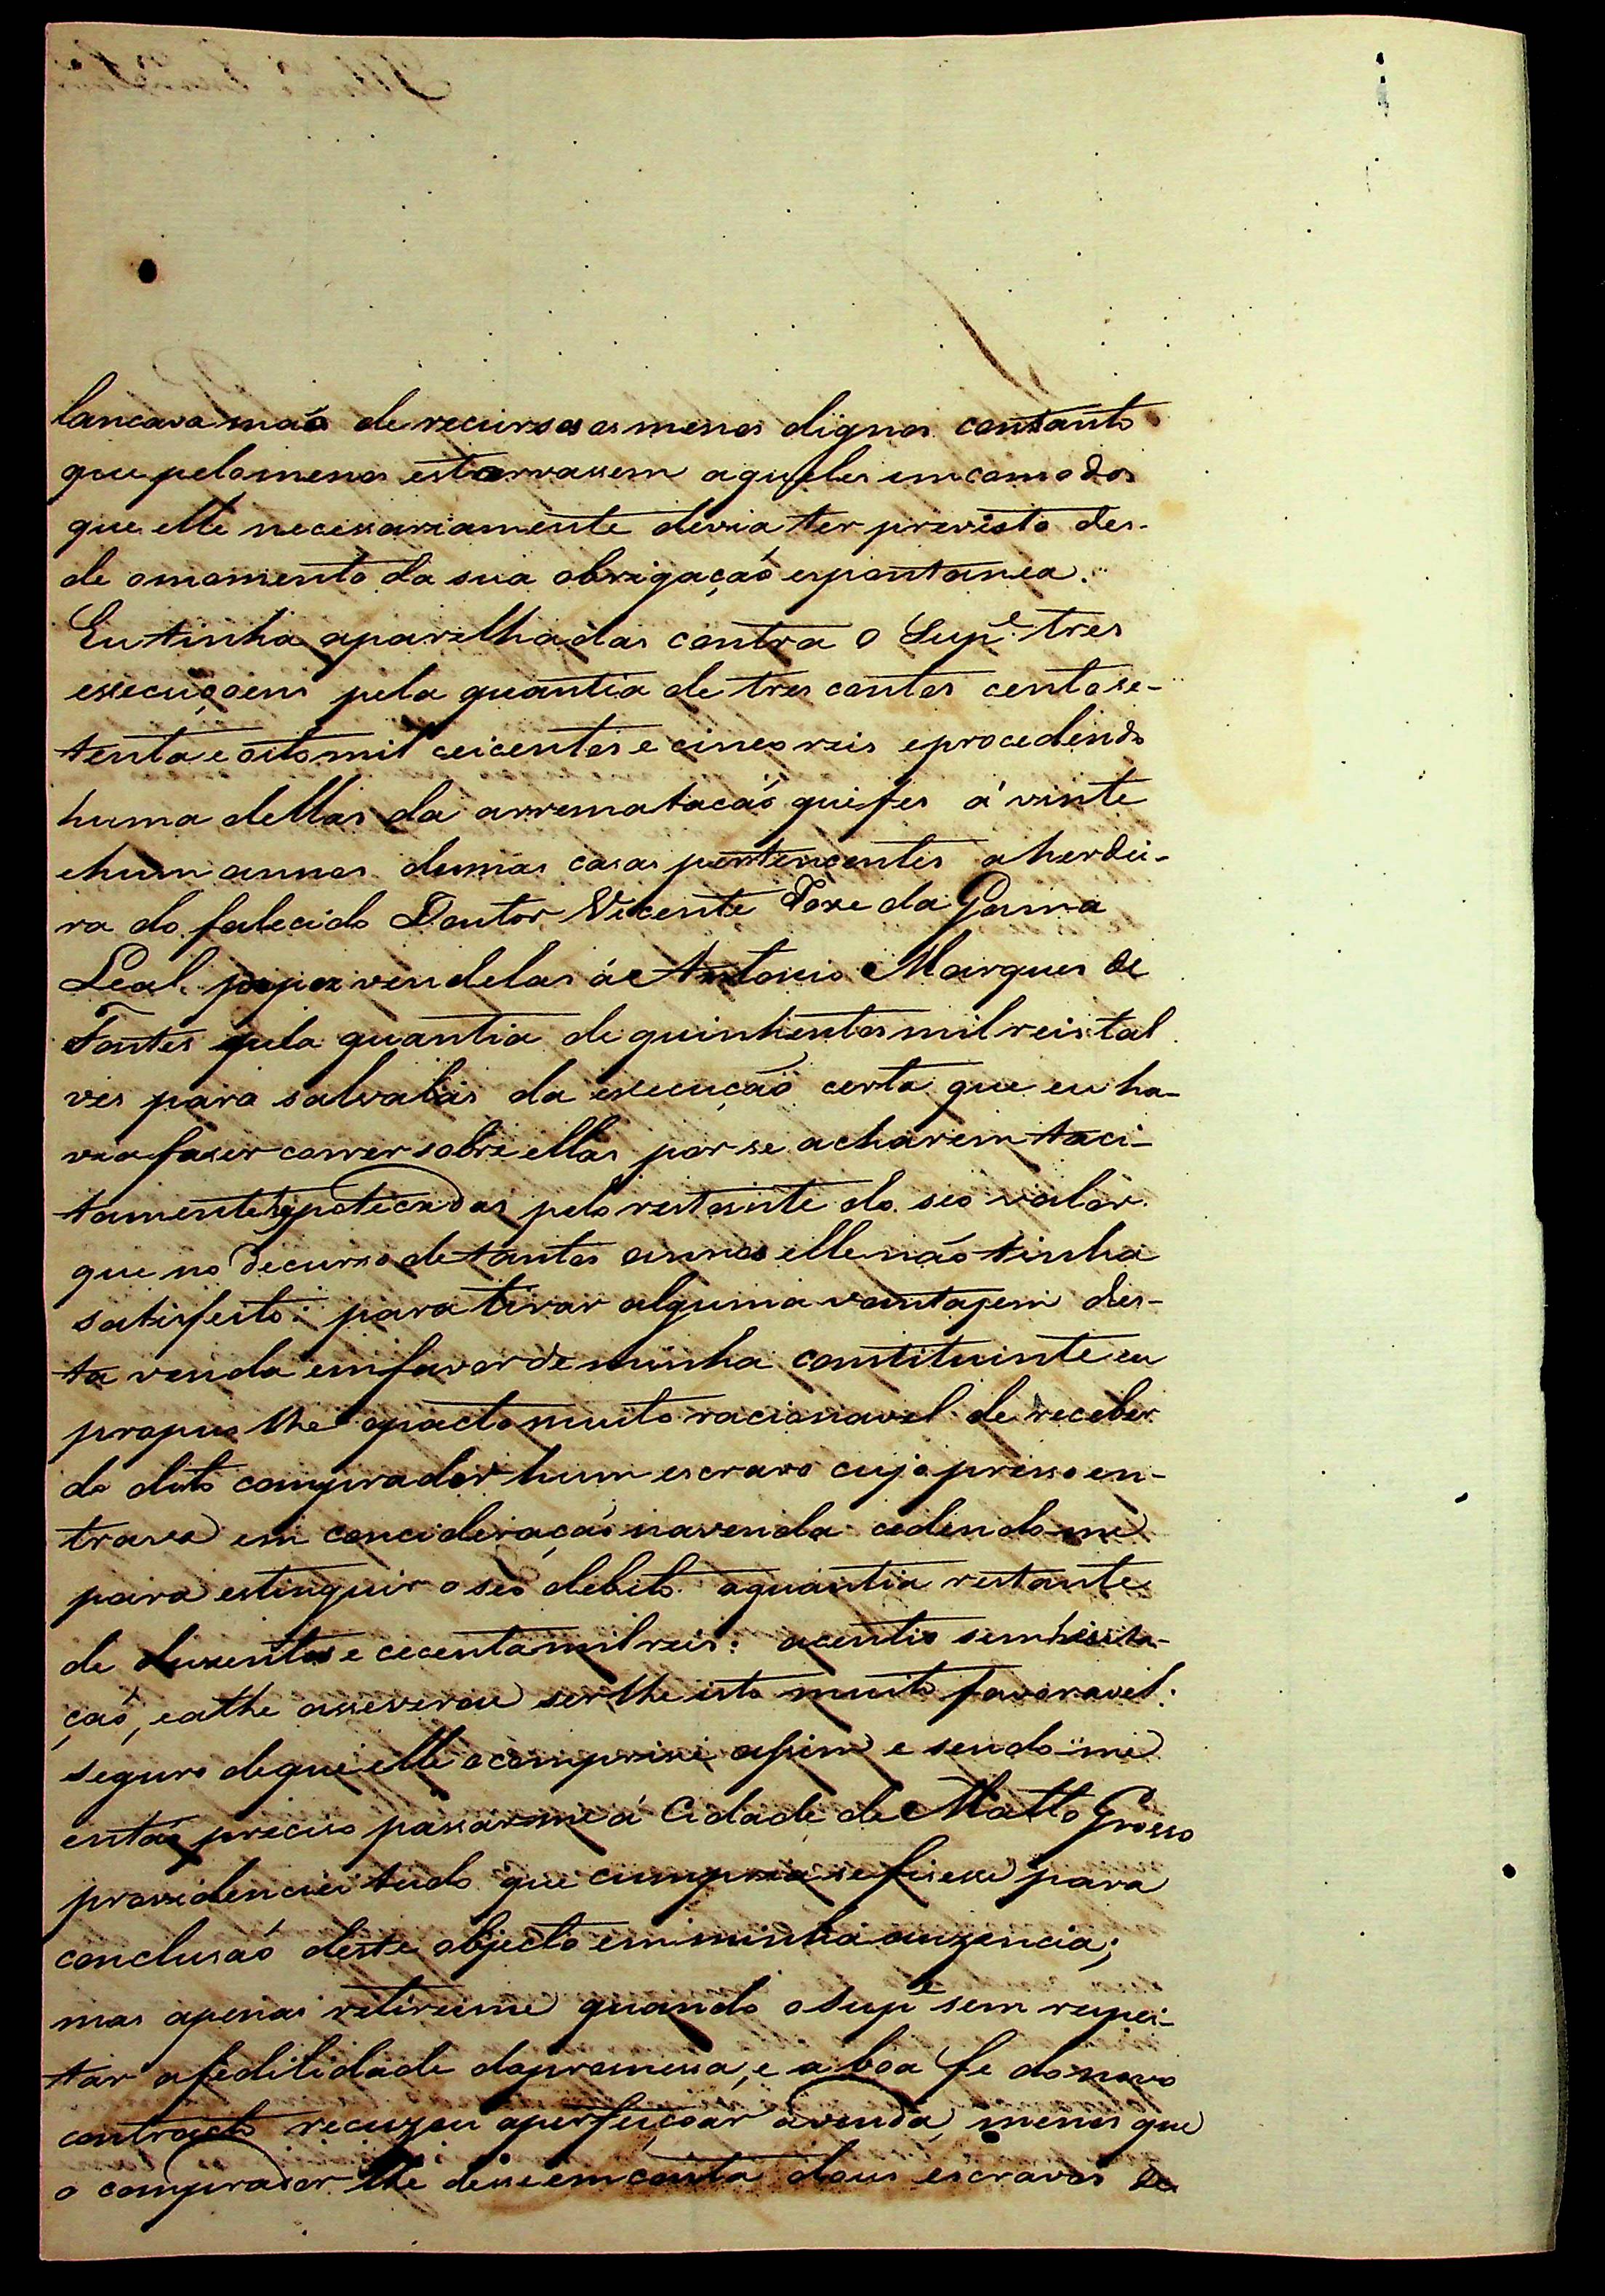 lancava maõ de recursos os menos dignos contanto
que pelo menos estorvassem aqueles incomodos
que elle necessariamente devia ter previsto des-
de omomento da sua obrigaçaõ espontanea.
Eu tinha aparelhadas contra o Sup.e tres
essecuçoens pela quantia de tres contos cento se-
tenta e oito mil ceicentos e cinco reis eprocedendo
huma dellas da arrematacaõ que fes á vinte
ehum annos dumas casas pertencentes aherdei-
ra do falecido Doutor Vicente Joze da Gama
Leal, vendelas á Antonio Marques de
Fontes pela quantia de quinhentos mil reis tal
ves para salvalas da essecuçaõ certa que eu ha-
via faser correr sobre ellas por se acharem taci-
tamente ypotecadas pelo restante do seo valor
que no decurso de tantos annos elle não tinha
satisfeito: para tirar alguma vantajem des-
ta venda emfavor de minha constituinte eu
propus lhe opacto muito racionavel de receber
do dito comprador hum escravo cujo presso en-
trava em concideraçaõ navenda cedendo-me
para estinguir o seo debito aquantia restante
de duzentos e cecenta mil reis: acentio sem hesita-
çaõ, eathe asseverou serlhe isto muito favoravel:
seguro deque elle o comprisse assim e sendo-me
entaõ preciso passarme á Cidade de Matto Grosso
providenciei tudo que cumpria se fisesse para
conclusaõ deste objecto em minha auzencia;
mas apenas retireime quando o Sup.e sem respei-
tar afedilidade dapromessa, e a boa fe do novo
contracto recuzou aperfeiçoar avenda, menos que
o comprador lhe desse em conta dous escravos de